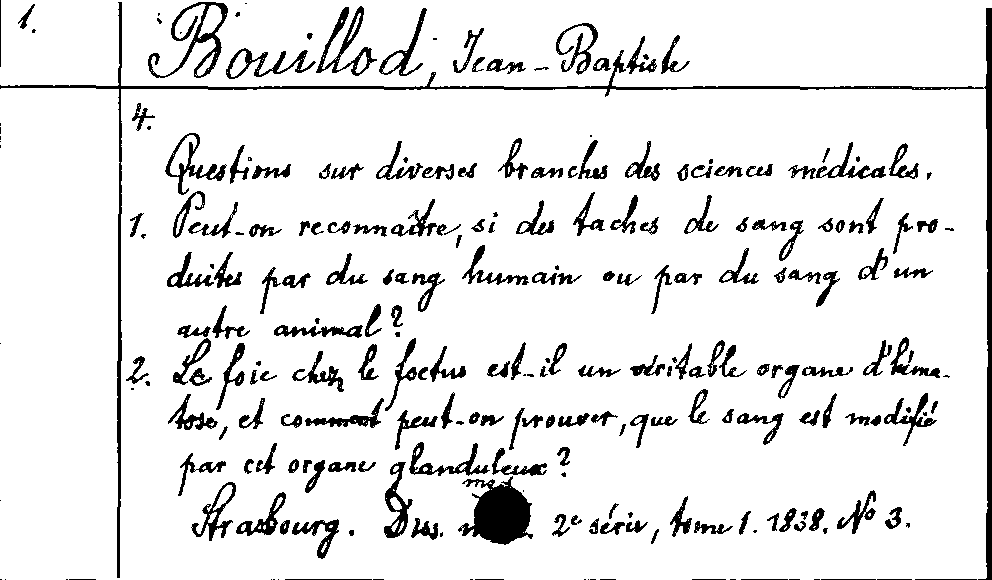 1.
Bouillod, Jean-Baptiste
4.
Questions sur diverses branches des sciences médicales.
1. Peut-on reconnaître, si des taches de sang sont pro-
duites par du sang humain ou par du sang d'un
autre animal?
2. Le foie chez le foetus est-il un véritable organe d'héma-
tose, et comment peut-on prouver, que le sang est modifié
par cet organe glanduleux?
med
Strasbourg. Diss. 2e série, tome 1. 1838. No 3.